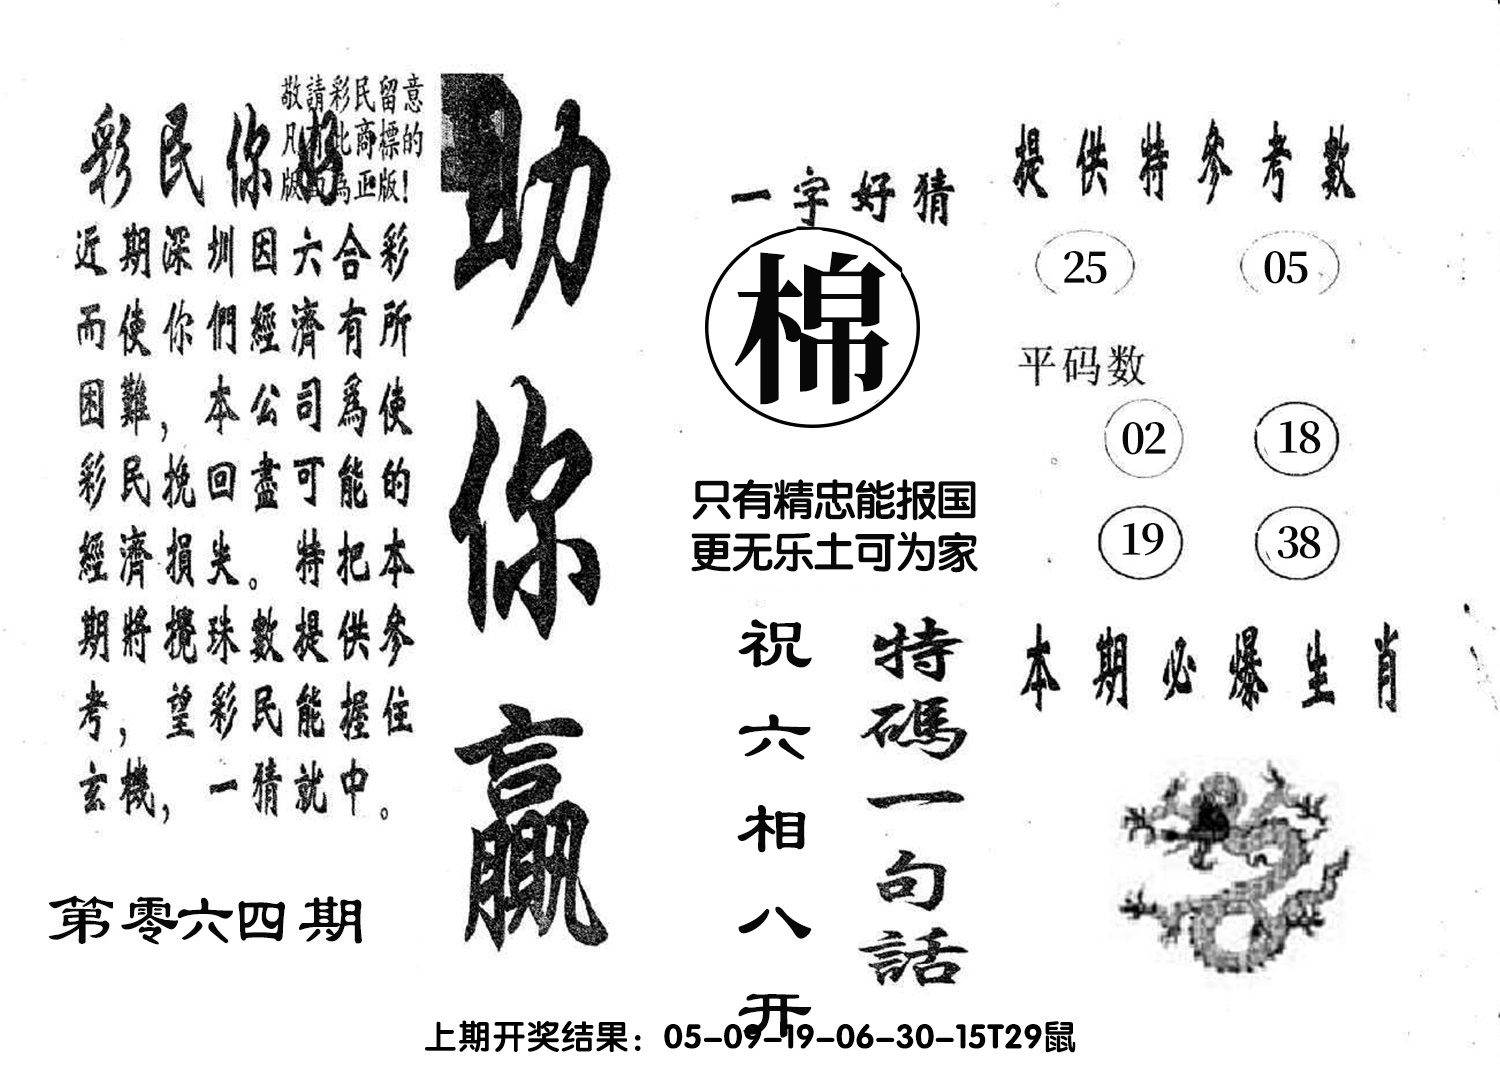 敬請彩民留意
凡有此商標的
版面為正版!
彩民你好
近期深圳因六合彩
而使你們經濟有所
困難,本公司爲使
彩民挽回盡可能的
經濟損失。特把本
期將攪珠數提供參
考,望彩民能握住
玄機,一猜就中。
第零六四期
助你贏
一字好猜
棉
只有精忠能报国
更无乐土可为家
特碼一句話
祝六相八开
提供特參考數
25 05
平码数
02 18
19 38
本期必爆生肖
上期开奖结果：05-09-19-06-30-15T29鼠